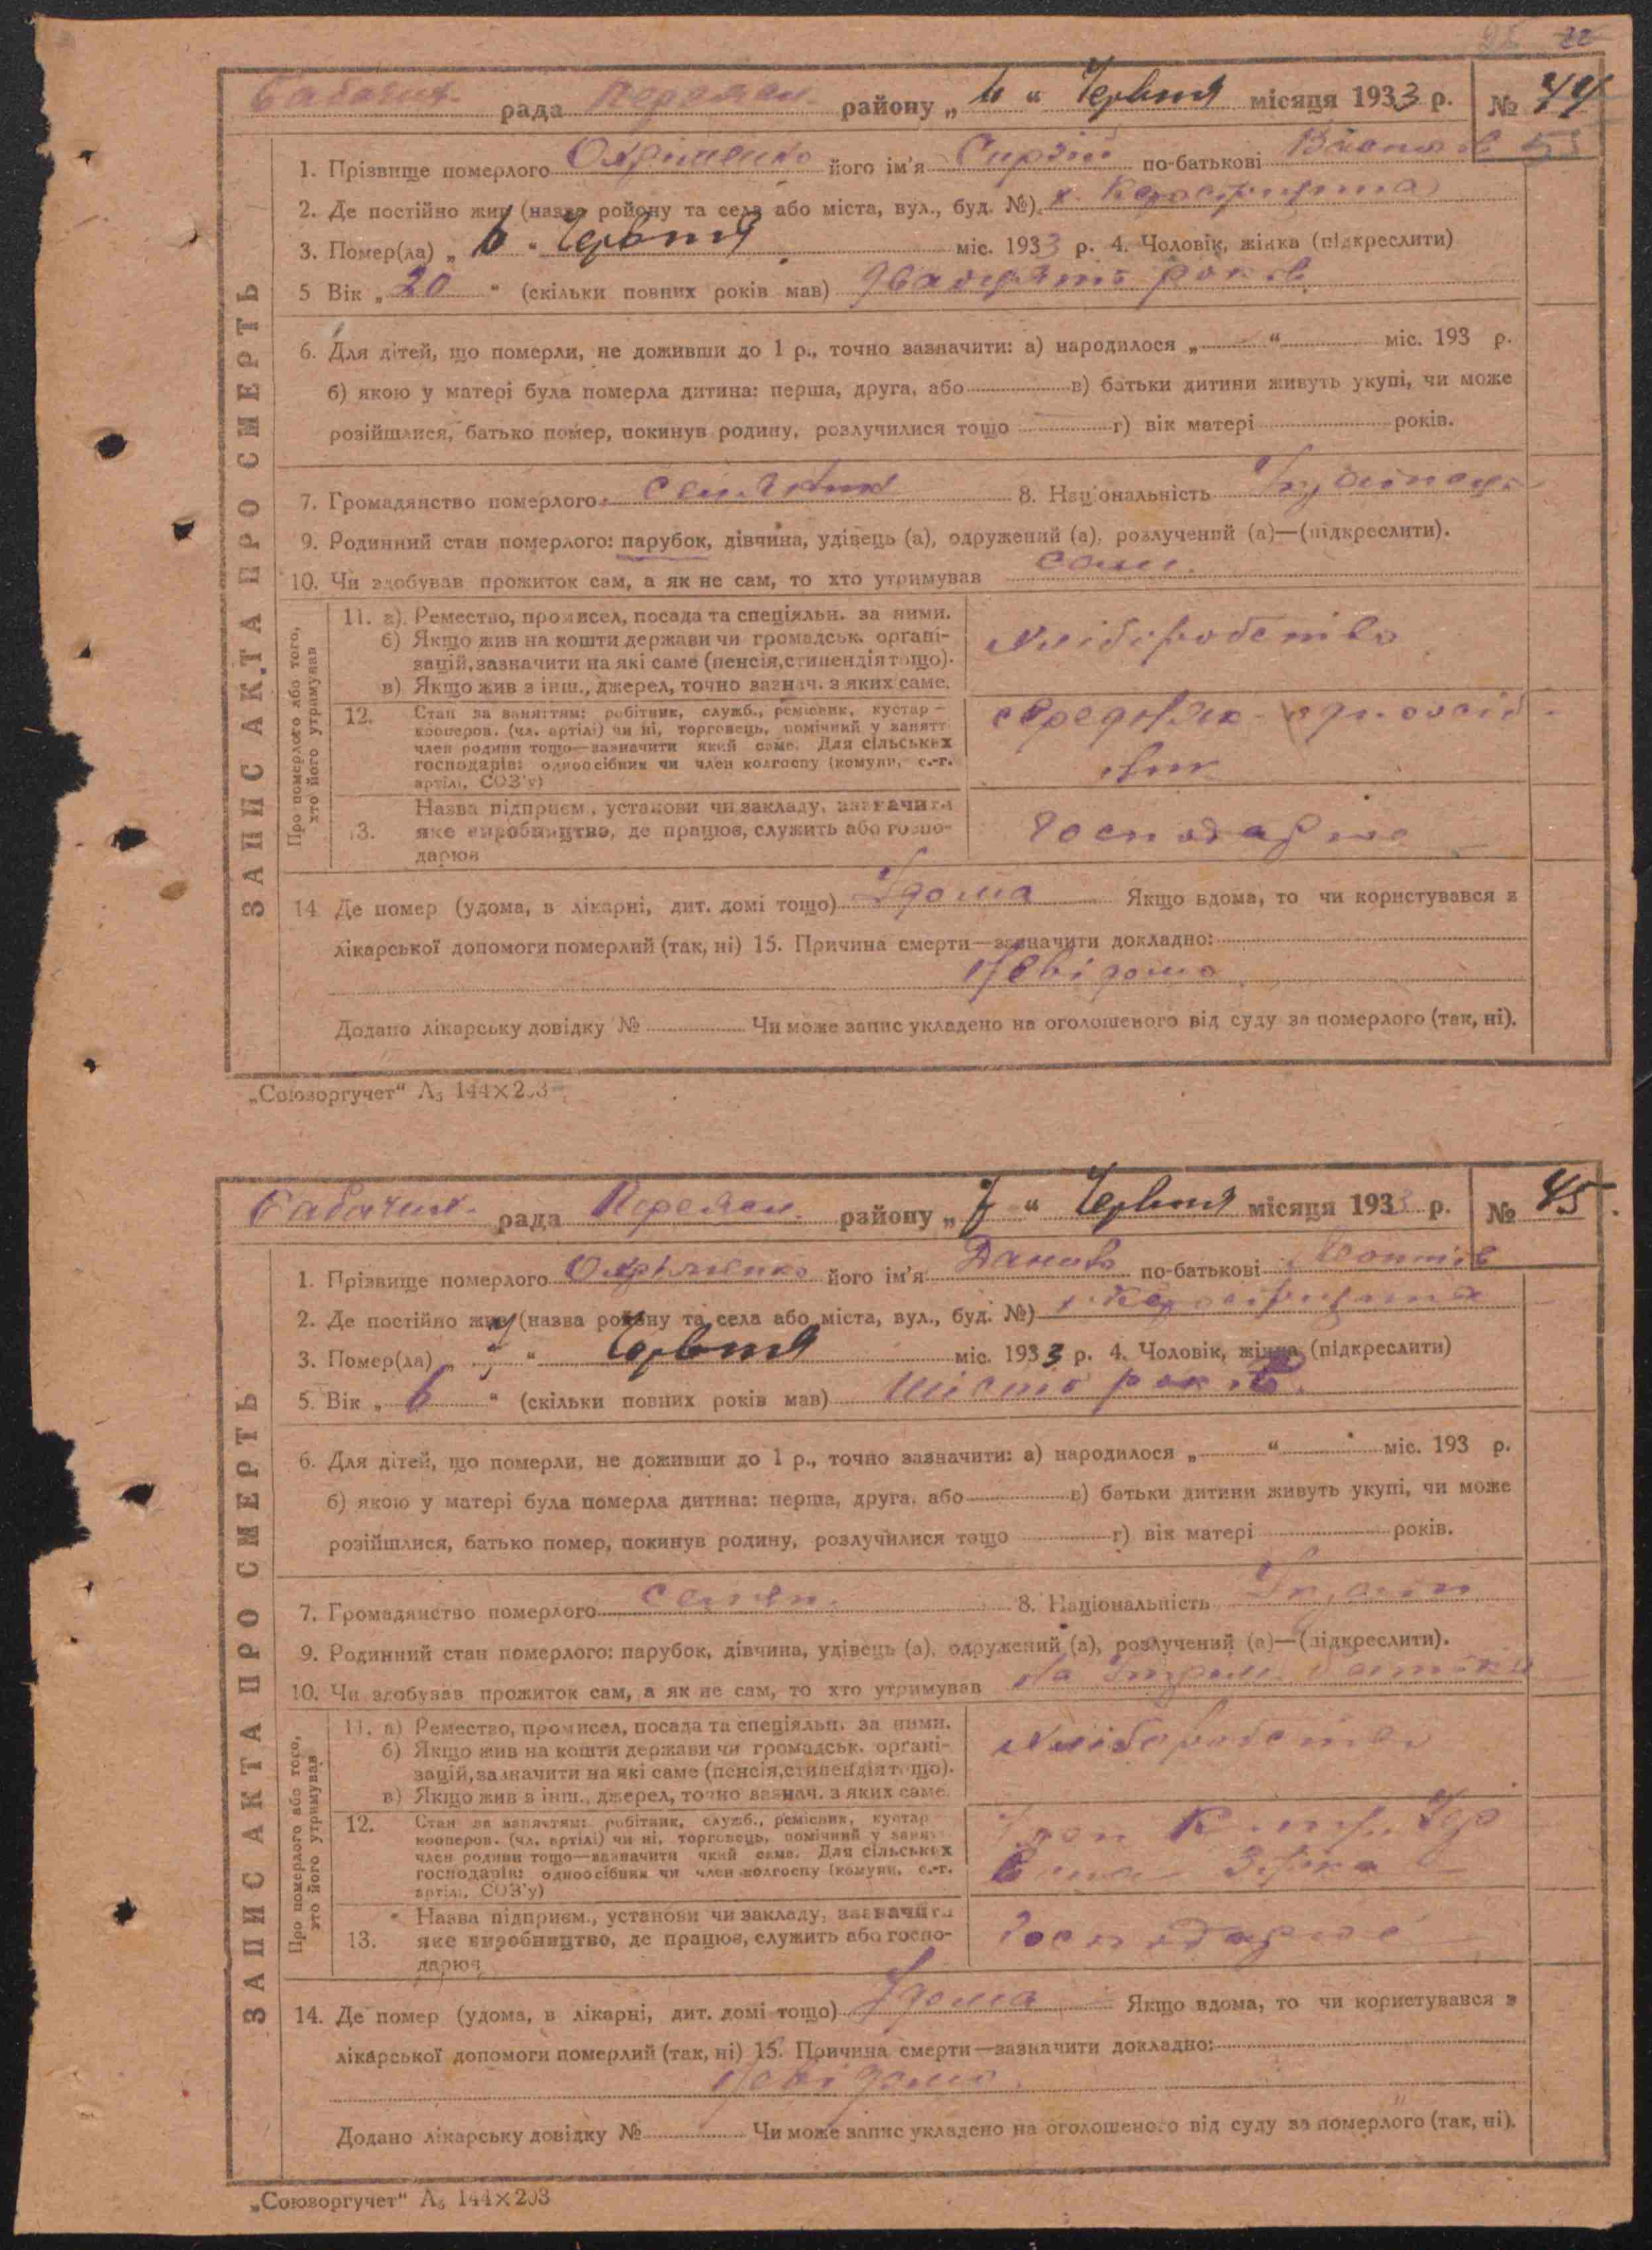 22
рада Переясл. району „ 6 “ Червня місяця 1933 р. № 44
1. Прізвище померлого Охріменко його ім'я Сиргій по-батькові
2. Де постійно жив (назва ройону та села або міста, вул., буд. №). х.
3. Помер(ла) „ 6 “ Червня міс. 1933 р. 4. Чоловік, жінка (підкреслити)
5 Вік „ 20 “ (скільки повних років мав) двадцять років
6. Для дітей, що померли, не доживши до 1 р., точно зазначити: а) народилося „ “ міс. 193 р.
б) якою у матері була померла дитина: перша, друга, або в) батьки дитини живуть укупі, чи може
розійшлися, батько помер, покинув родину, розлучилися тощо г) вік матері років.
7. Громадянство померлого 8. Національність Українець
9. Родинний стан померлого: парубок, дівчина, удівець (а), одружений (а), розлучений (а)—(підкреслити).
10. Чи здобував прожиток сам, а як не сам, то хто утримував сам.
ЗАПИС АКТА ПРО СМЕРТЬ
Про померлого або того,
хто його утримував
11. а) Ремество, промисел, посада та спеціяльн. за ними.
б) Якщо жив на кошти держави чи громадськ. органі-
зацій, зазначити на які саме (пенсія, стипендія тощо).
в) Якщо жив з інш., джерел, точно зазнач. з яких саме.
хліборобство
12. Стан за заняттям: робітник, служб., ремісник, кустар—
кооперов. (чл. артілі) чи ні, торговець, помічний у занятт
член родини тощо—зазначити який саме. Для сільських
господарів: одноосібник чи член колгоспу (комуни, с.-г.
артілі, СОЗ'у)
середняк- одноосіб-
ник
13. Назва підприєм., установи чи закладу, зазначити
яке виробництво, де працює, служить або госпо-
дарює
Господарює
14. Де помер (удома, в лікарні, дит. домі тощо) Удома Якщо вдома, то чи користувався з
лікарської допомоги померлий (так, ні) 15. Причина смерти—зазначити докладно:
Невідомо
Додано лікарську довідку № Чи може запис укладено на оголошеного від суду за померлого (так, ні).
„Союзоргучет“ А5 144×203
рада Переясл. району „ 7 “ Червня місяця 1933 р. № 45.
1. Прізвище померлого Охріменко його ім'я Данило по-батькові
2. Де постійно жив (назва ройону та села або міста, вул., буд. №) х.
3. Помер(ла) „ 7 “ Червня міс. 1933 р. 4. Чоловік, жінка (підкреслити)
5. Вік „ 6 “ (скільки повних років мав) шість років.
6. Для дітей, що померли, не доживши до 1 р., точно зазначити: а) народилося „ “ міс. 193 р.
б) якою у матері була померла дитина: перша, друга, або в) батьки дитини живуть укупі, чи може
розійшлися, батько помер, покинув родину, розлучилися тощо г) вік матері років.
7. Громадянство померлого селян. 8. Національність Україн
9. Родинний стан померлого: парубок, дівчина, удівець (а), одружений (а), розлучений (а)—(підкреслити).
10. Чи здобував прожиток сам, а як не сам, то хто утримував На утрим. батьків
ЗАПИС АКТА ПРО СМЕРТЬ
Про померлого або того,
хто його утримував
11. а) Ремество, промисел, посада та спеціяльн. за ними.
б) Якщо жив на кошти держави чи громадськ. органі-
зацій, зазначити на які саме (пенсія, стипендія тощо).
в) Якщо жив з інш., джерел, точно зазнач. з яких саме.
хліборобство
12. Стан за заняттям: робітник, служб., ремісник, кустар
кооперов. (чл. артілі) чи ні, торговець, помічний у занят
член родини тощо—зазначити який саме. Для сільських
господарів: одноосібник чи член колгоспу (комуни, с.-г.
артілі, СОЗ'у)
13. Назва підприєм., установи чи закладу, зазначити
яке виробництво, де працює, служить або госпо-
дарює
Господарює
14. Де помер (удома, в лікарні, дит. домі тощо) Удома Якщо вдома, то чи користувався з
лікарської допомоги померлий (так, ні) 15. Причина смерти—зазначити докладно:
Невідомо.
Додано лікарську довідку № Чи може запис укладено на оголошеного від суду за померлого (так, ні).
„Союзоргучет“ А5 144×203